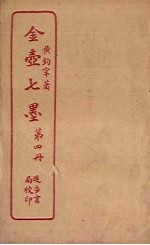 黄鈞宰著
金壺七墨
第四冊
進步書
局校印